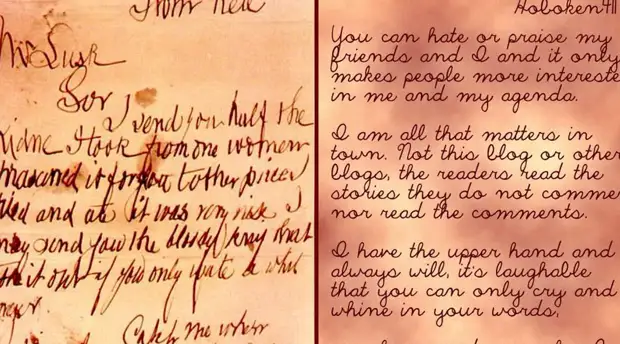 from hell
Mr Lusk
Sor
I send you half the
Kidne I took from one women
prasarved it for you tother piece I
fried and ate it was very nise I
may send you the bloody knif that
took it out if you only wate a whil
longer.
Catch me when
Hoboken411
You can hate or praise my
friends and I and it only
makes people more intereste
in me and my agenda.
I am all that matters in
town. Not this blog or other
blogs, the readers read the
stories they do not comme
nor read the comments.
I have the upper hand and
always will, it's laughable
that you can only cry and
whine in your words,